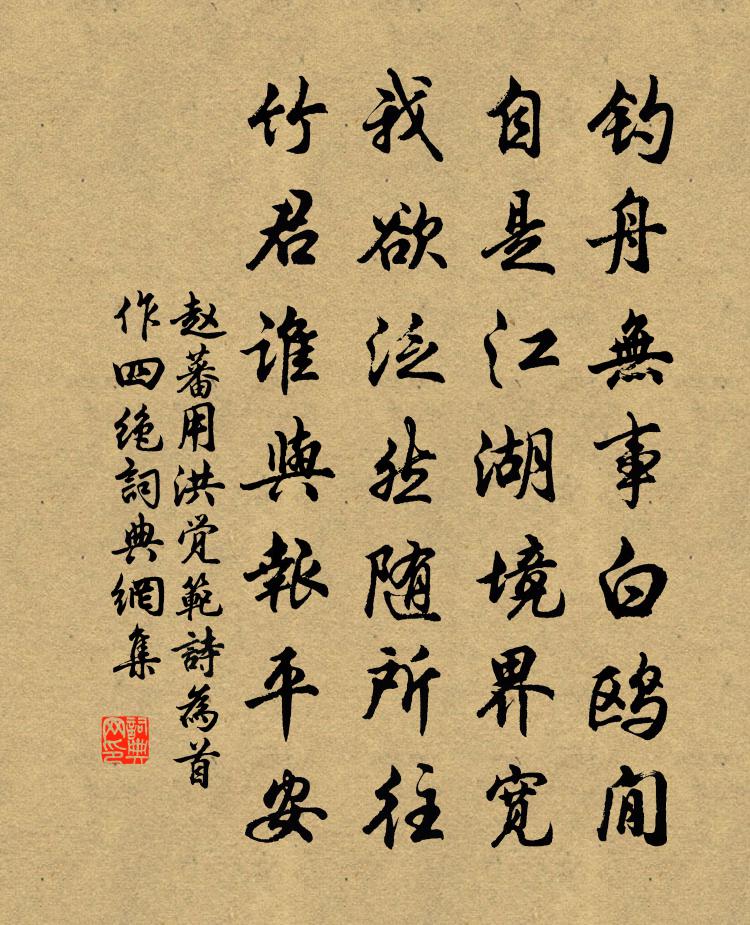 钓舟無事白鸥閒
自是江湖境界寬
我欲泛然随所往
竹君谁與報平安
赵蕃用洪觉範詩為首
作四绝詞典網集
詞典网印